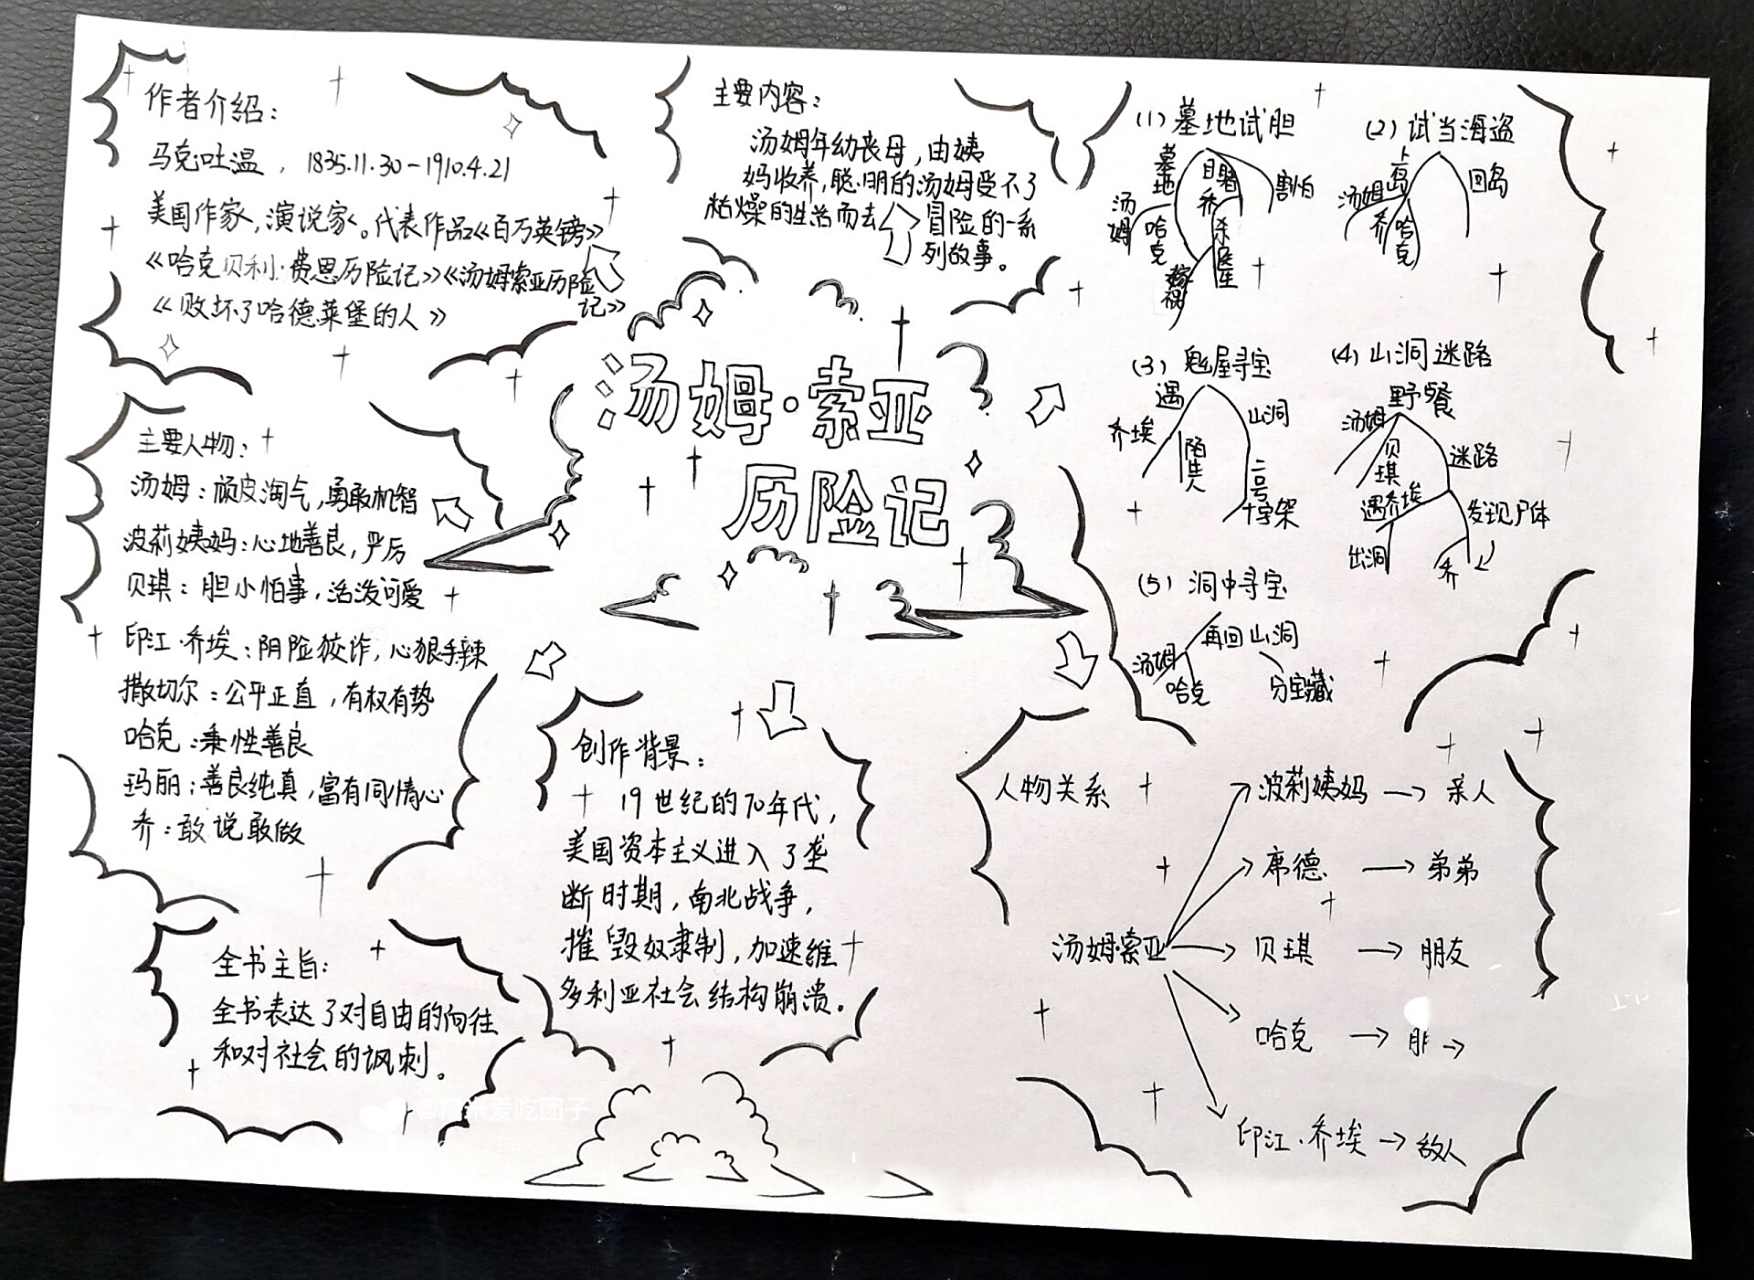 作者介绍：
马克吐温，1835.11.30-1910.4.21
美国作家，演说家。代表作品《百万英镑》
《哈克贝利·费恩历险记》《汤姆索亚历险
记》
《败坏了哈德莱堡的人》
主要内容：
汤姆年幼丧母，由姨
妈收养，聪明的汤姆受不了
枯燥的生活而去冒险的一系
列故事。
(1)墓地试胆
墓地
目睹
害怕
汤姆
哈克
乔
杀医生
嫁祸
(2)试当海盗
上岛
回岛
汤姆
乔
哈克
汤姆·索亚
历险记
(3)鬼屋寻宝
遇
山洞
乔埃
陌生人
二号
十字架
(4)山洞迷路
野餐
汤姆
贝琪
迷路
遇乔埃
发现尸体
出洞
乔
(5)洞中寻宝
再回山洞
汤姆
哈克
分宝藏
主要人物：
汤姆：顽皮淘气，勇敢机智
波莉姨妈：心地善良，严厉
贝琪：胆小怕事，活泼可爱
印江·乔埃：阴险狡诈，心狠手辣
撒切尔：公平正直，有权有势
哈克：秉性善良
玛丽：善良纯真，富有同情心
乔：敢说敢做
全书主旨：
全书表达了对自由的向往
和对社会的讽刺。
创作背景：
19世纪的70年代，
美国资本主义进入了垄
断时期，南北战争，
摧毁奴隶制，加速维
多利亚社会结构崩溃。
人物关系
汤姆·索亚
波莉姨妈→亲人
席德→弟弟
贝琪→朋友
哈克→
印江·乔埃→敌人
爱吃团子